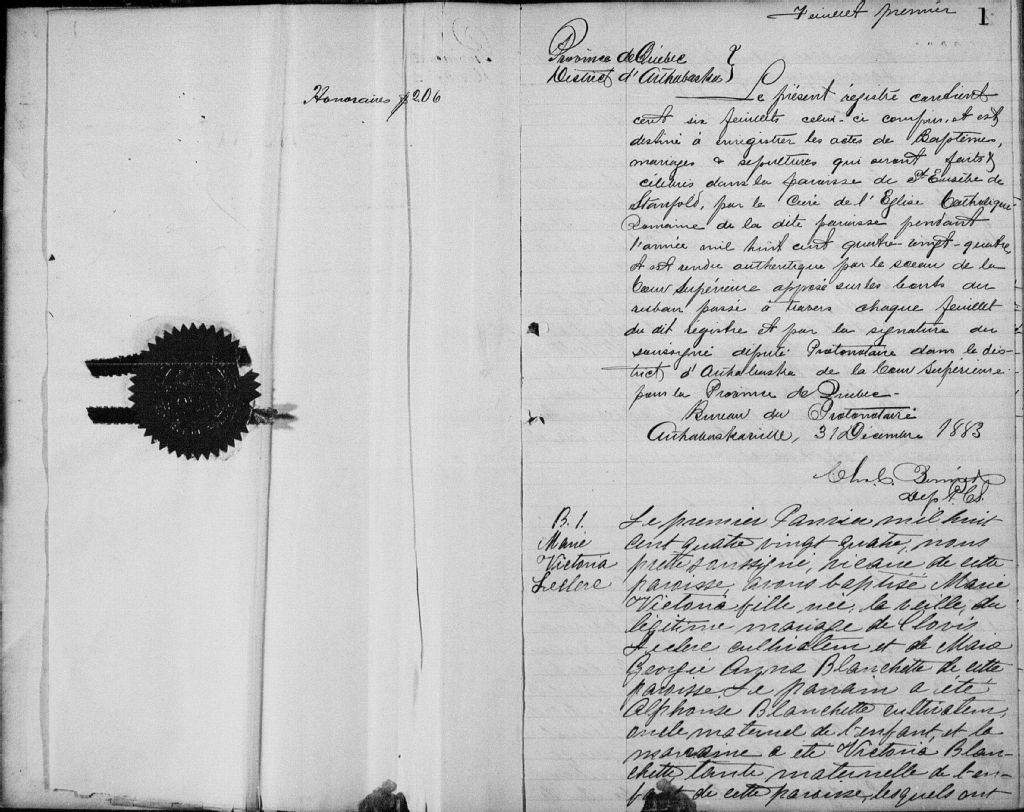 Honoraires $2.06
Feuillet premier 1
Province de Québec }
District d'Arthabaska }
Le présent registre contient
cent six feuillets celui-ci compris, et est
destiné à enregistrer les actes de Baptêmes,
mariages & sepultures qui seront faits &
célébrés dans la paroisse de St Eusèbe de
Stanfold, par le Curé de l'Eglise Catholique
Romaine de la dite paroisse pendant
l'année mil huit cent quatre-vingt-quatre,
et est rendu authentique par le sceau de la
Cour Supérieure apposé sur les bouts du
ruban passé à travers chaque feuillet
du dit registre et par la signature du
soussigné député Protonotaire dans le dis-
trict d'Arthabaska de la Cour Supérieure
pour la Province de Québec-
Bureau du Protonotaire
Arthabaskaville, 31 Décembre 1883
Dep P.C.S.
B. 1.
Marie
Victoria
Leclerc
Le premier Janvier mil huit
cent quatre vingt quatre, nous
prêtre soussigné, vicaire de cette
paroisse, avons baptisé Marie
Victoria fille, née, la veille, du
légitime mariage de Clovis
Leclerc cultivateur et de Marie
Georgie Anna Blanchette de cette
paroisse. Le parrain a été
Alphonse Blanchette cultivateur,
oncle maternel de l'enfant, et la
marraine a été Victoria Blan-
chette tante maternelle de l'en-
fant de cette paroisse, lesquels ont